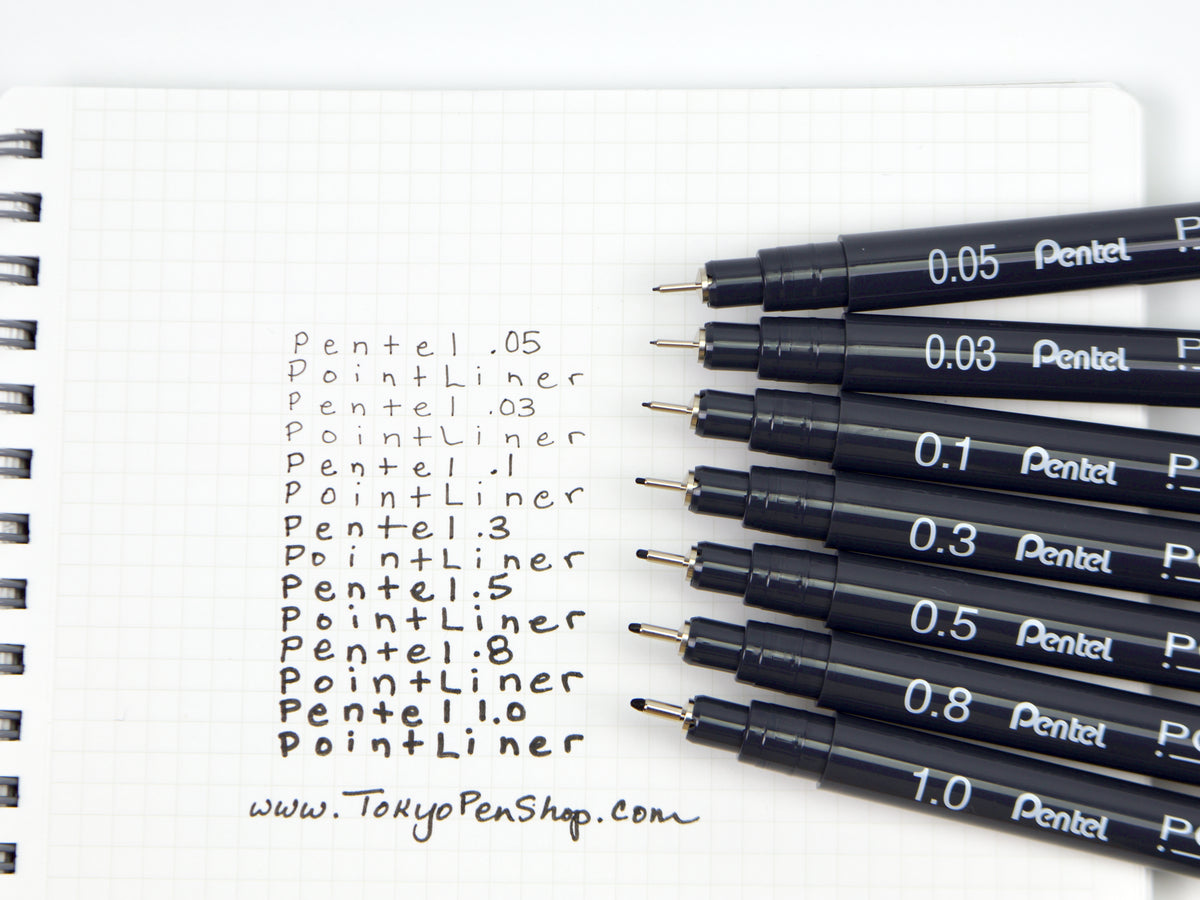 Pentel .05
PointLiner
Pentel .03
PointLiner
Pentel .1
PointLiner
Pentel .3
PointLiner
Pentel .5
PointLiner
Pentel .8
PointLiner
Pentel 1.0
PointLiner
www.TokyoPenShop.com
0.05 Pentel P
0.03 Pentel P
0.1 Pentel P
0.3 Pentel Po
0.5 Pentel Po
0.8 Pentel Po
1.0 Pentel Po